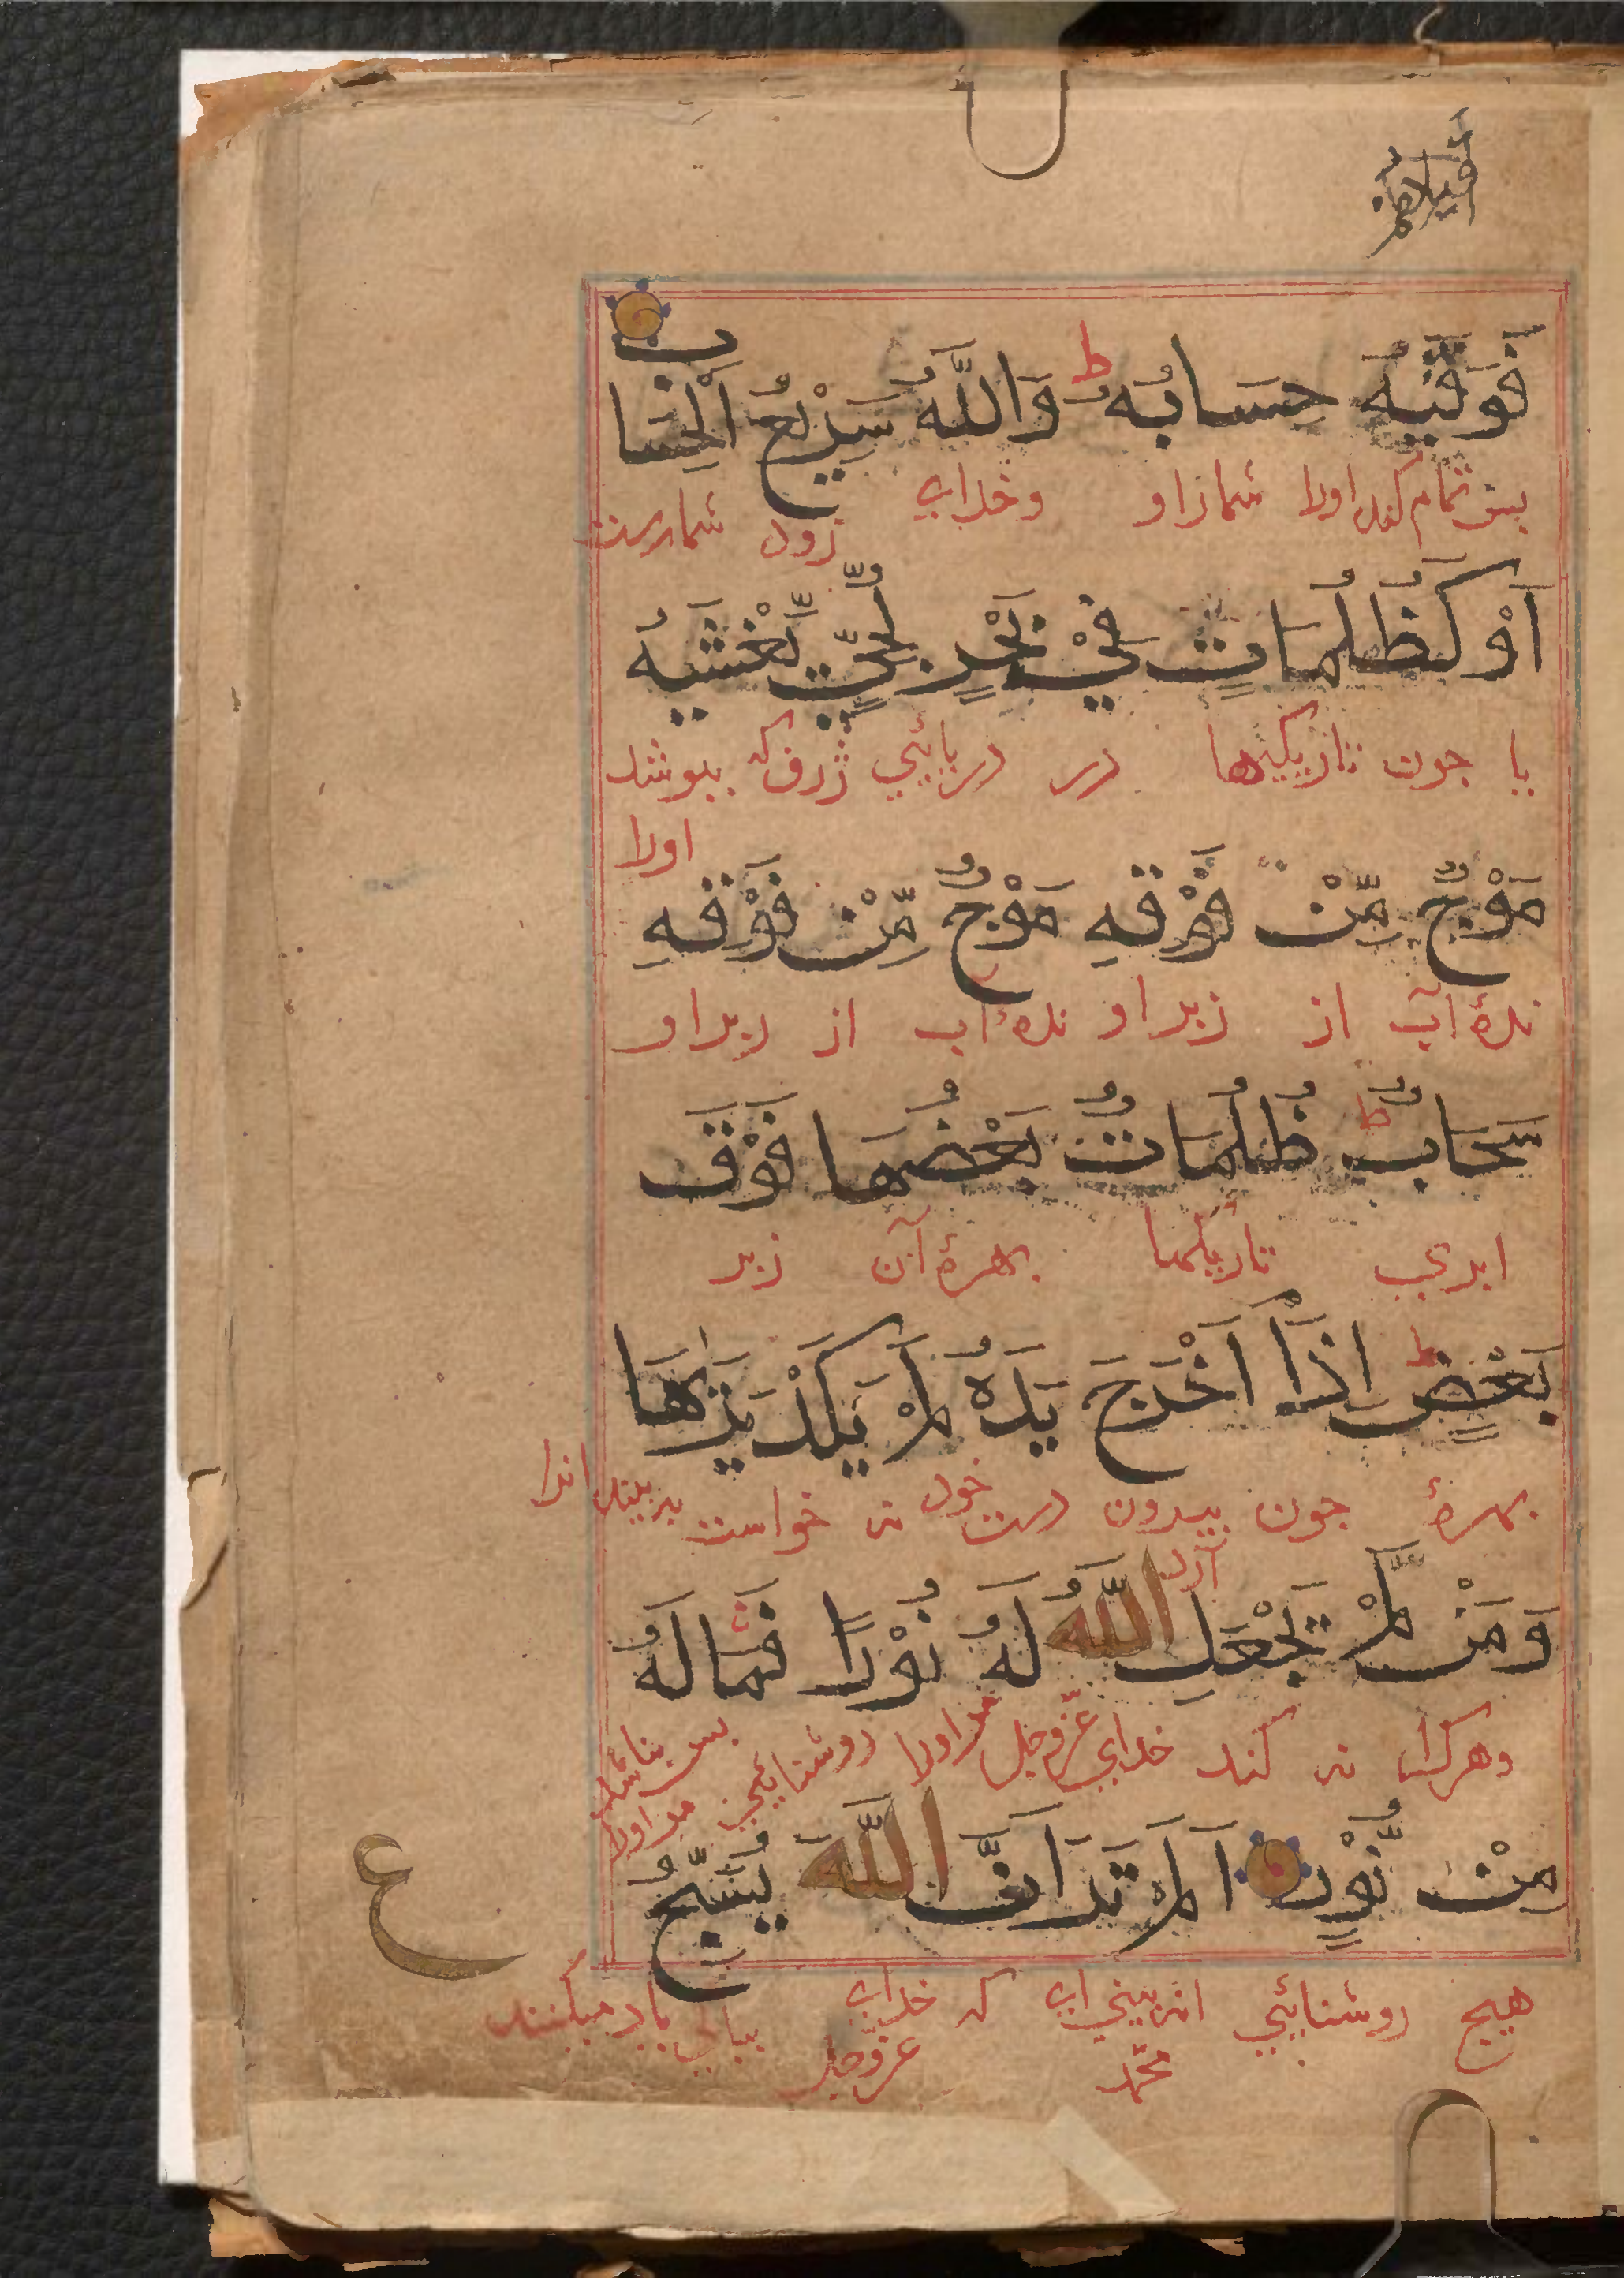 فَوَفّٰيهُ حِسَابَهُ ط وَاللَّهُ سَرِيْعُ الْحِسَابِ
بس تمام كند اورا شمار او وخداى زود شمارست
اَوْ كَظُلُمَاتٍ فِيْ بَحْرٍ لُّجِّيٍّ يَّغْشٰيهُ
يا جون تاريكيها در دريائي ژرف كه ببوشد اورا
مَوْجٌ مِّنْ فَوْقِهِ مَوْجٌ مِّنْ فَوْقِهِ
نرهٔ آب از زبر او نرهٔ آب از زبر او
سَحَابٌ ط ظُلُمَاتٌ بَعْضُهَا فَوْقَ
ابري تاريكيها بهرهٔ آن زبر
بَعْضٍ ط اِذَا اَخْرَجَ يَدَهُ لَمْ يَكَدْ يَرٰىهَا
بهرهٔ جون بيرون آرد دست خود نه خواست به بيند انرا
وَمَنْ لَّمْ يَجْعَلِ اللَّهُ لَهُ نُوْرًا فَمَا لَهُ
وهركرا نه كند خداي عزّوجل مر اورا روشنايي بس نباشد مر اورا
مِنْ نُّوْرٍ اَلَمْ تَرَ اَنَّ اللَّهَ يُسَبِّحُ
هيج روشنائي انه بيني اى محمّد كه خداى عزّوجل بباكي ياد ميكنند
ع